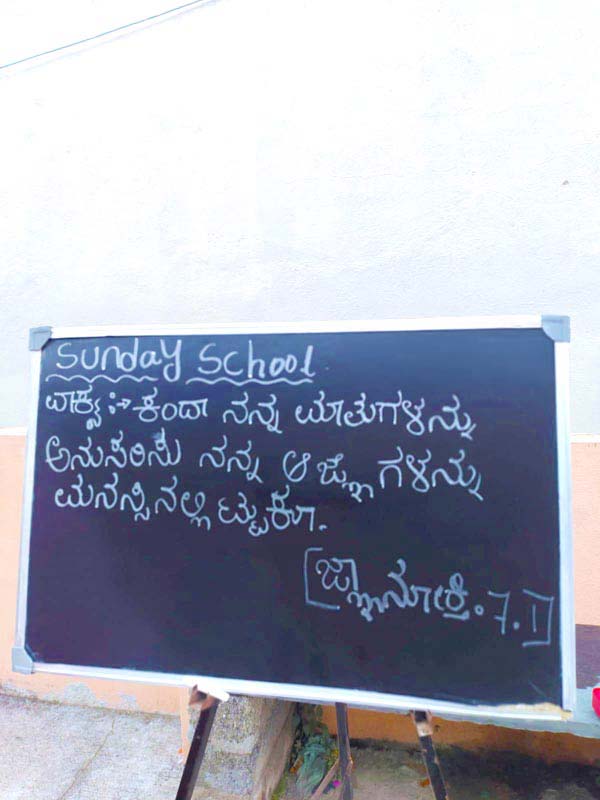 Sunday School
ವಾಕ್ಯ :→ ಕಂದಾ ನನ್ನ ಮಾತುಗಳನ್ನು
ಅನುಸರಿಸು ನನ್ನ ಆಜ್ಞೆಗಳನ್ನು
ಮನಸ್ಸಿನಲ್ಲಿಟ್ಟುಕೂ.
[ಜ್ಞಾನೋಕ್ತಿ. 7. 1]